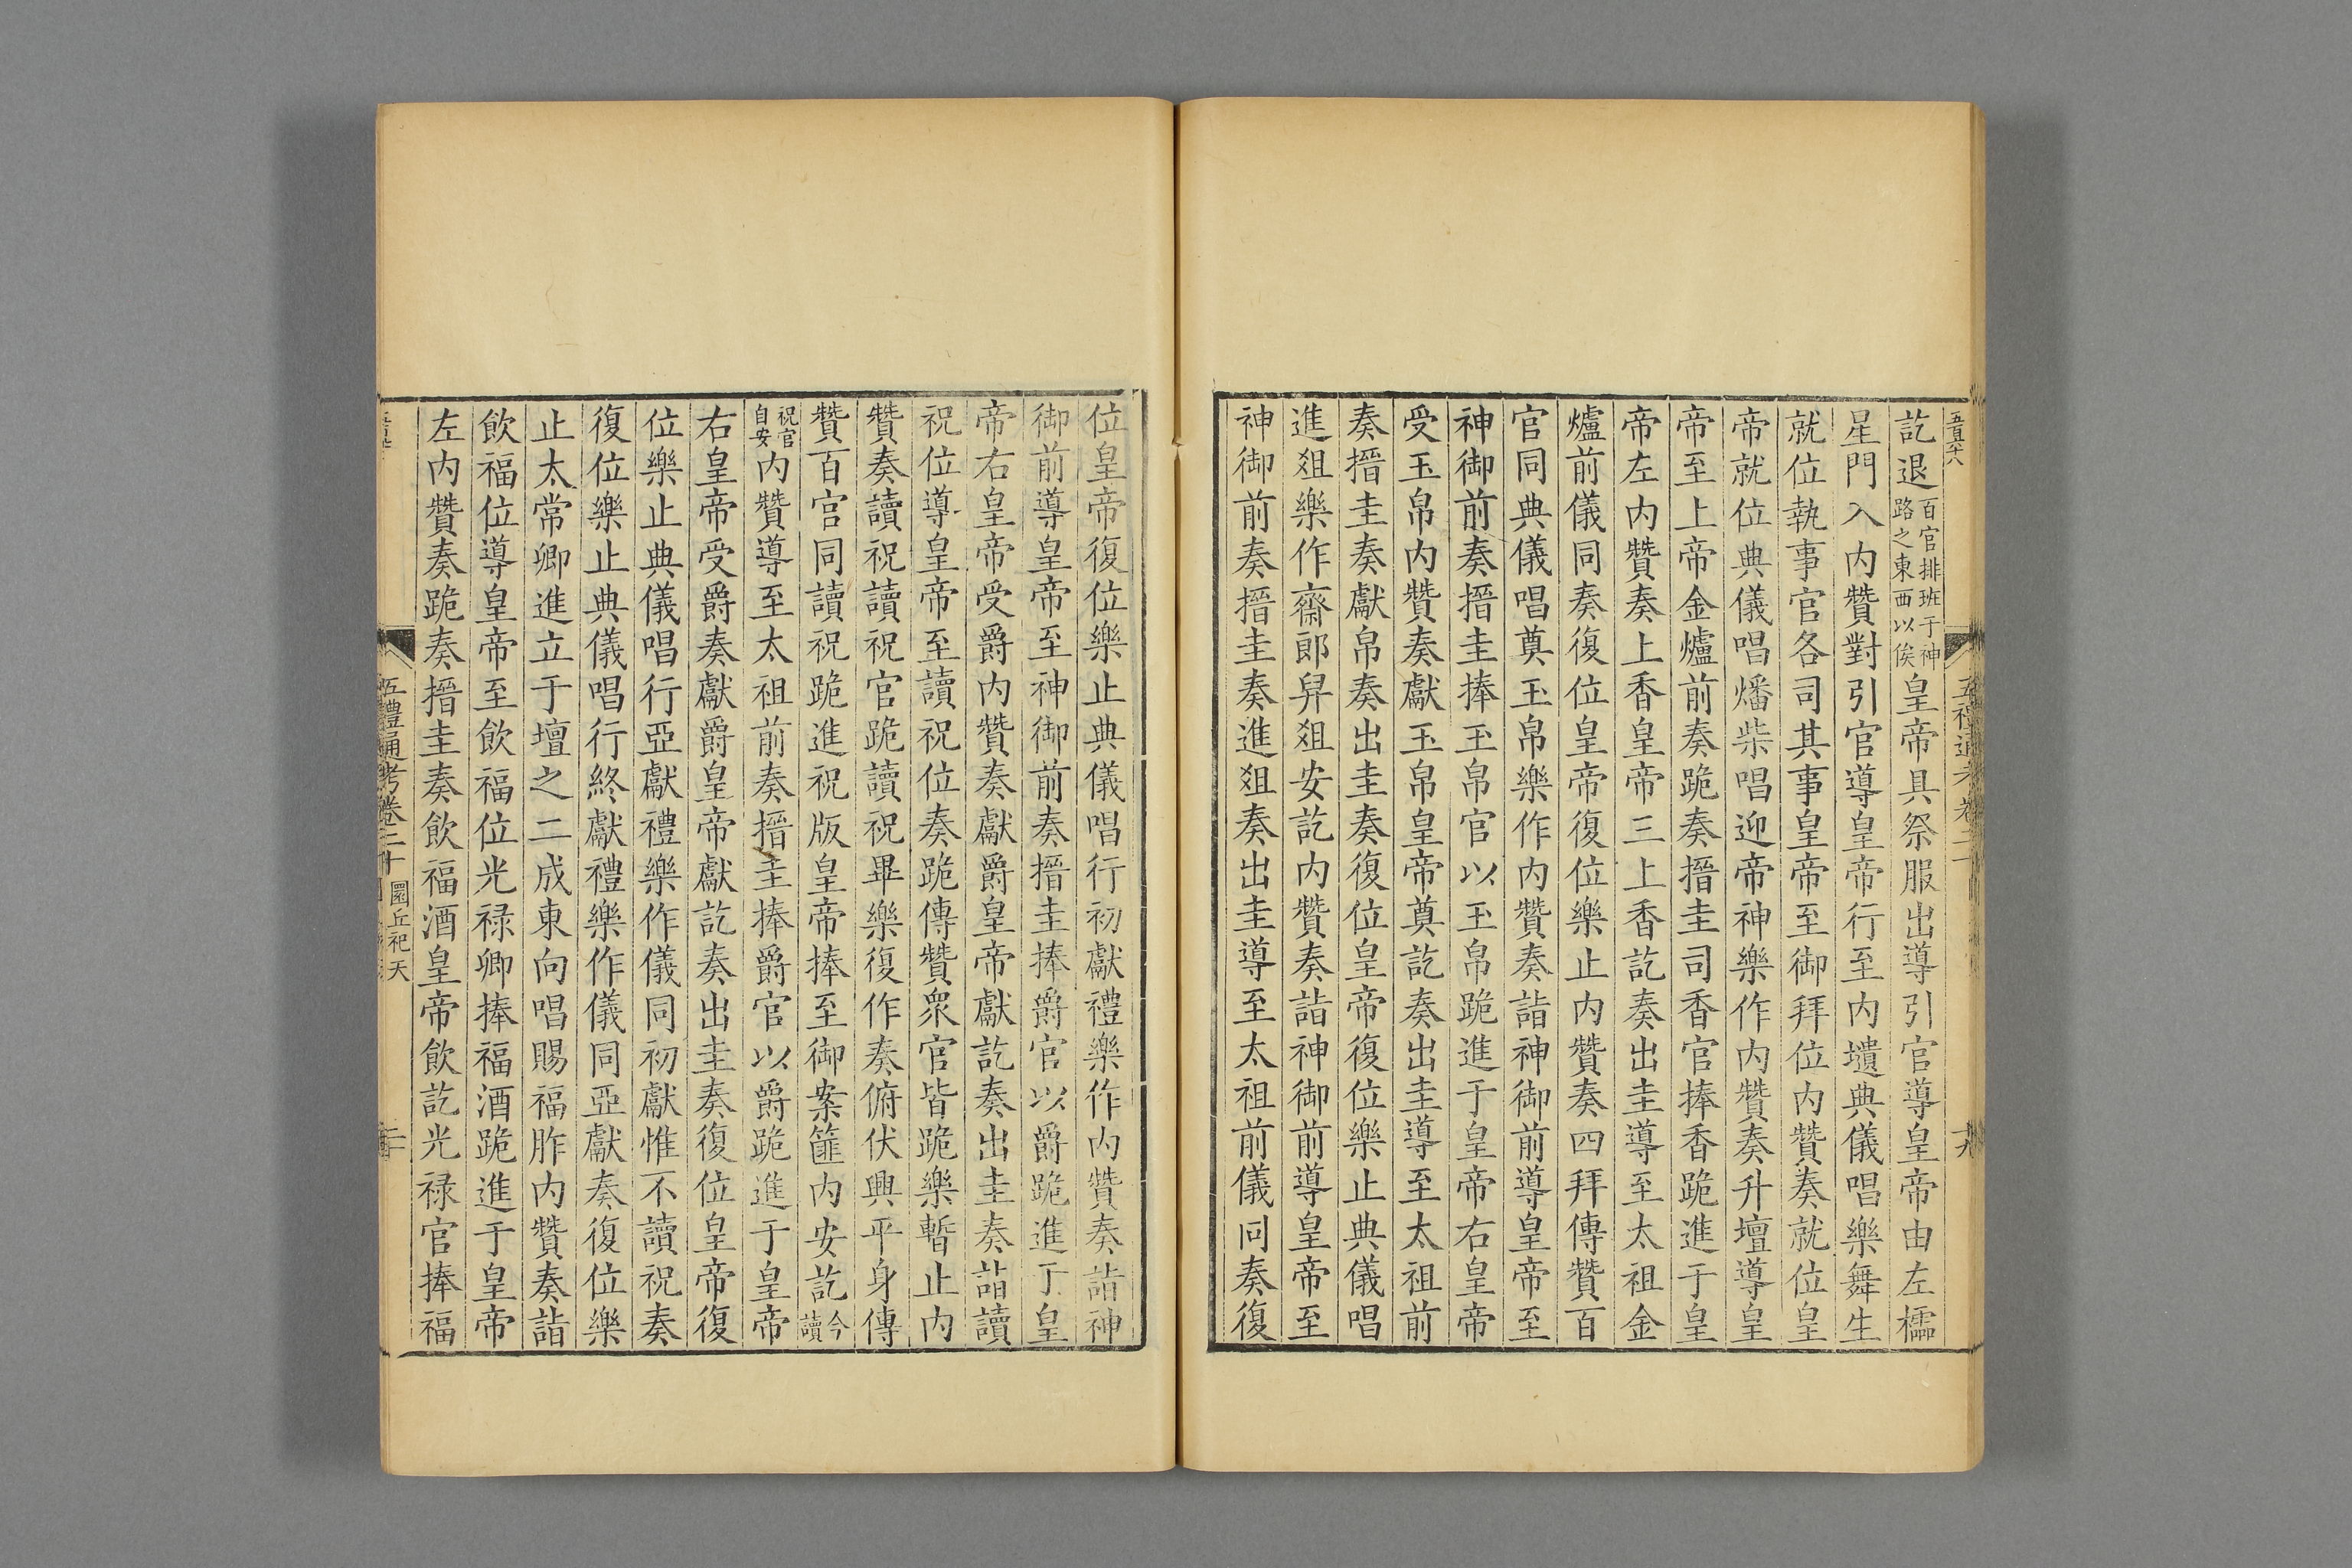 訖退百官排班于神路之東西以俟皇帝具祭服出導引官導皇帝由左櫺
星門入內贊對引官導皇帝行至內壝典儀唱樂舞生
就位執事官各司其事皇帝至御拜位內贊奏就位皇
帝就位典儀唱燔柴唱迎帝神樂作內贊奏升壇導皇
帝至上帝金爐前奏跪奏搢圭司香官捧香跪進于皇
帝左內贊奏上香皇帝三上香訖奏出圭導至太祖金
爐前儀同奏復位皇帝復位樂止內贊奏四拜傳贊百
官同典儀唱奠玉帛樂作內贊奏詣神御前導皇帝至
神御前奏搢圭捧玉帛官以玉帛跪進于皇帝右皇帝
受玉帛內贊奏獻玉帛皇帝奠訖奏出圭導至太祖前
奏搢圭奏獻帛奏出圭奏復位皇帝復位樂止典儀唱
進俎樂作齋郎舁俎安訖內贊奏詣神御前導皇帝至
神御前奏搢圭奏進俎奏出圭導至太祖前儀同奏復
位皇帝復位樂止典儀唱行初獻禮樂作內贊奏詣神
御前導皇帝至神御前奏搢圭捧爵官以爵跪進于皇
帝右皇帝受爵內贊奏獻爵皇帝獻訖奏出圭奏詣讀
祝位導皇帝至讀祝位奏跪傳贊眾官皆跪樂暫止內
贊奏讀祝讀祝官跪讀祝畢樂復作奏俯伏興平身傳
贊百官同讀祝跪進祝版皇帝捧至御案篚內安訖今讀
祝官自安內贊導至太祖前奏搢圭捧爵官以爵跪進于皇帝
右皇帝受爵奏獻爵皇帝獻訖奏出圭奏復位皇帝復
位樂止典儀唱行亞獻禮樂作儀同初獻惟不讀祝奏
復位樂止典儀唱行終獻禮樂作儀同亞獻奏復位樂
止太常卿進立于壇之二成東向唱賜福胙內贊奏詣
飲福位導皇帝至飲福位光祿卿捧福酒跪進于皇帝
左內贊奏跪奏搢圭奏飲福酒皇帝飲訖光祿官捧福
五禮通考卷二十 圜丘祀天